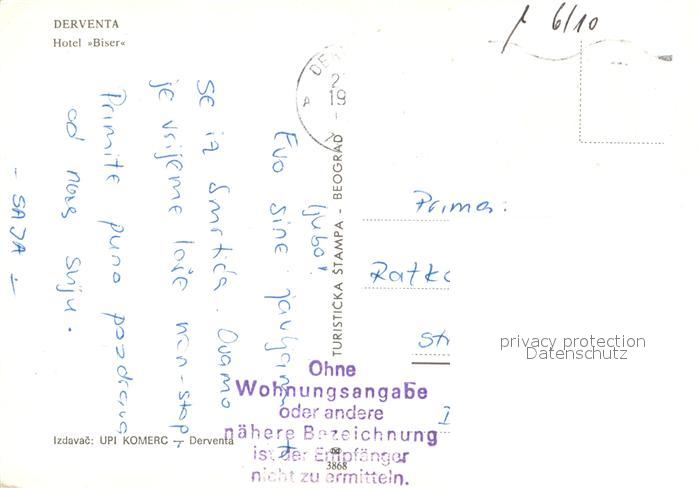 DERVENTA
Hotel »Biser«
μ 6/10
2
19
ljubo!
Evo sine javljam
se iz Smrtića. Ovamo
je vrijeme loše non-stop,
Primite puno pozdrava
od nas sviju.
- SAJA -
TURISTIČKA ŠTAMPA - BEOGRAD
Prima:
Ratko
privacy protection
Datenschutz
Ohne
Wohnungsangabe
oder andere
nähere Bezeichnung
ist der Empfänger
nicht zu ermitteln.
Izdavač: UPI KOMERC — Derventa
3868